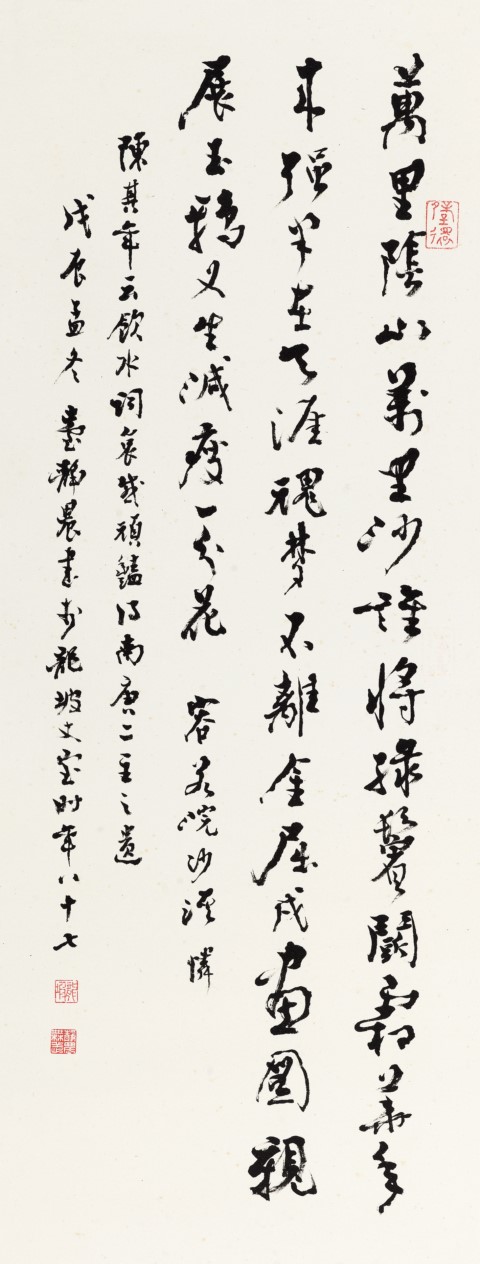 萬里陰山萬里沙誰將綠鬢鬥霜華年
來強半在天涯魂夢不離金屈戌畫圖親
展玉鴉叉生減瘦一分花 容若浣沙溪 憐
陳其年云飲水詞哀感頑豔得南唐二主之遺
戊辰孟冬 臺靜農書於龍坡丈室時年八十七